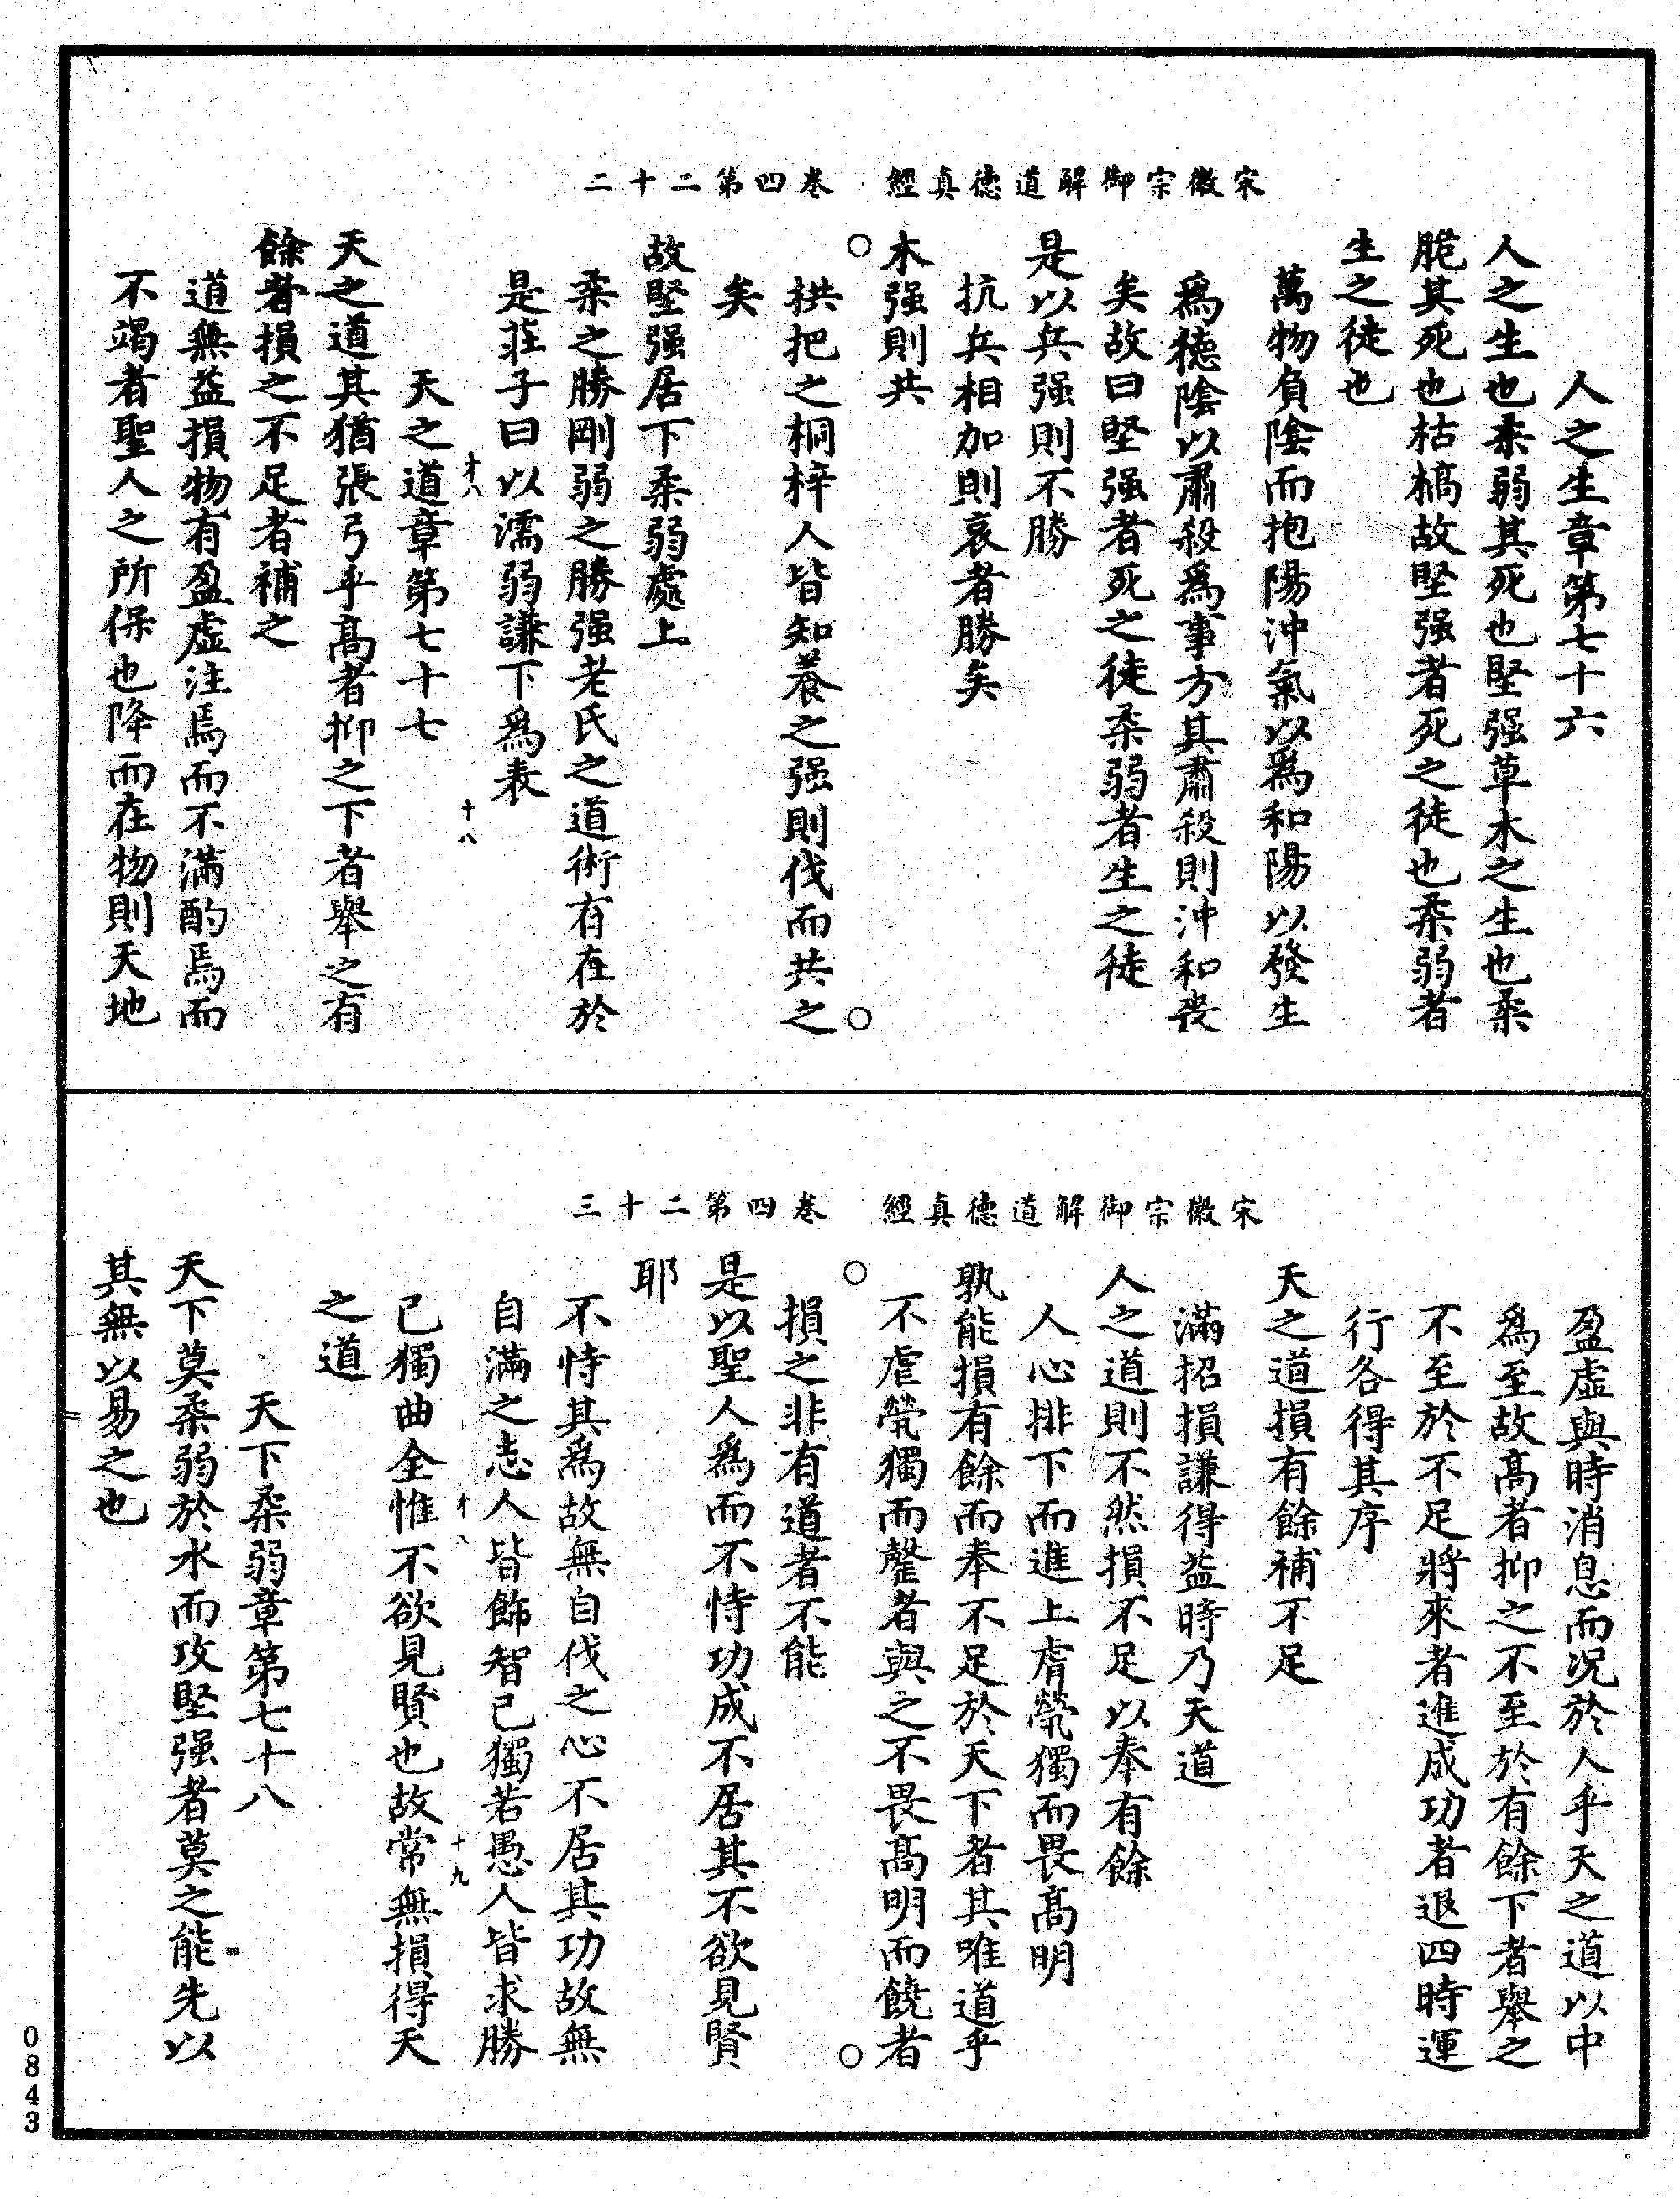 宋徽宗御解道德真經　卷四第二十二
人之生章第七十六
人之生也柔弱其死也堅强草木之生也柔
脆其死也枯槁故堅强者死之徒也柔弱者
生之徒也
萬物負陰而抱陽沖氣以爲和陽以發生
爲德陰以肅殺爲事方其肅殺則沖和喪
矣故曰堅强者死之徒柔弱者生之徒
是以兵强則不勝
抗兵相加則哀者勝矣
木强則共
○　○
拱把之桐梓人皆知養之强則伐而共之
矣
故堅强居下柔弱處上
柔之勝剛弱之勝强老氏之道術有在於
是莊子曰以濡弱謙下爲表
才八　十八
天之道章第七十七
天之道其猶張弓乎高者抑之下者舉之有
餘者損之不足者補之
道無益損物有盈虛注焉而不滿酌焉而
不竭者聖人之所保也降而在物則天地
宋徽宗御解道德真經　卷四第二十三
盈虛與時消息而況於人乎天之道以中
爲至故高者抑之不至於有餘下者舉之
不至於不足將來者進成功者退四時運
行各得其序
天之道損有餘補不足
滿招損謙得益時乃天道
人之道則不然損不足以奉有餘
人心排下而進上虐煢獨而畏高明
孰能損有餘而奉不足於天下者其唯道乎
不虐煢獨而罄者與之不畏高明而饒者
○　○
損之非有道者不能
是以聖人爲而不恃功成不居其不欲見賢
耶
不恃其爲故無自伐之心不居其功故無
自滿之志人皆飾智己獨若愚人皆求勝
才八　十九
己獨曲全惟不欲見賢也故常無損得天
之道
天下柔弱章第七十八
天下莫柔弱於水而攻堅强者莫之能先以
其無以易之也
0843